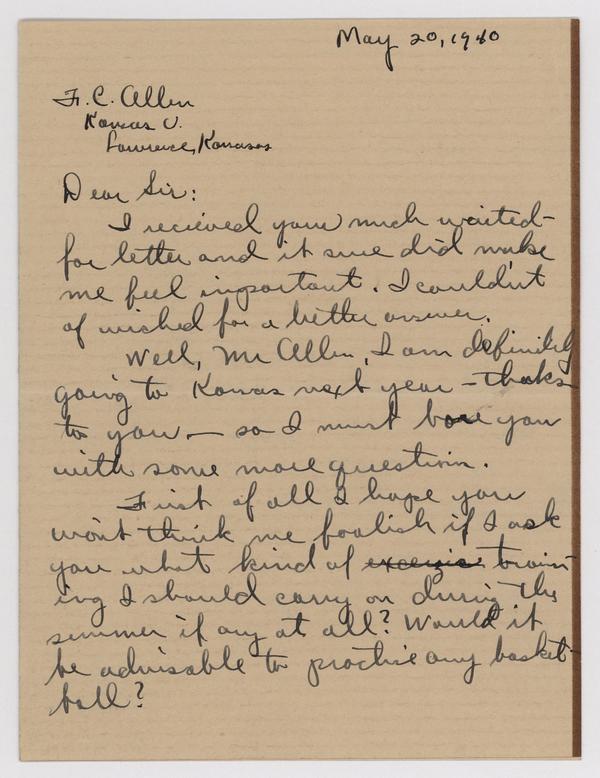 May 20, 1940
F. C. Allen
Kansas U.
Lawrence, Kansas
Dear Sir:
I recieved your much waited-
for letter and it sure did make
me feel important. I couldn't
of wished for a better answer.
Well, Mr Allen, I am definitely
going to Kansas next year - thanks
to you — so I must bore you
with some more question.
First of all I hope you
won't think me foolish if I ask
you what kind of excerzie train-
ing I should carry on during the
summer if any at all? Would it
be advisable to practice any basket-
ball?